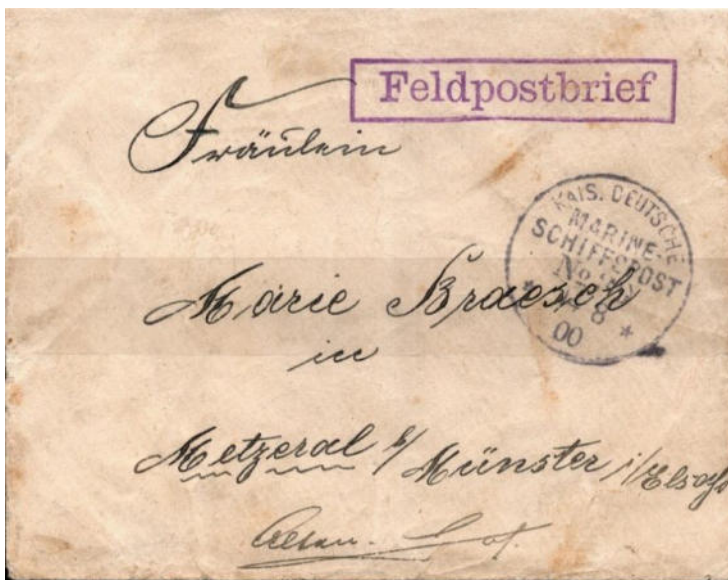 Feldpostbrief
Fräulein
KAIS. DEUTSCHE
MARINE-
SCHIFFSPOST
No
8
00
Marie Braesch
in
Metzeral b/ Münster i/Elsaß